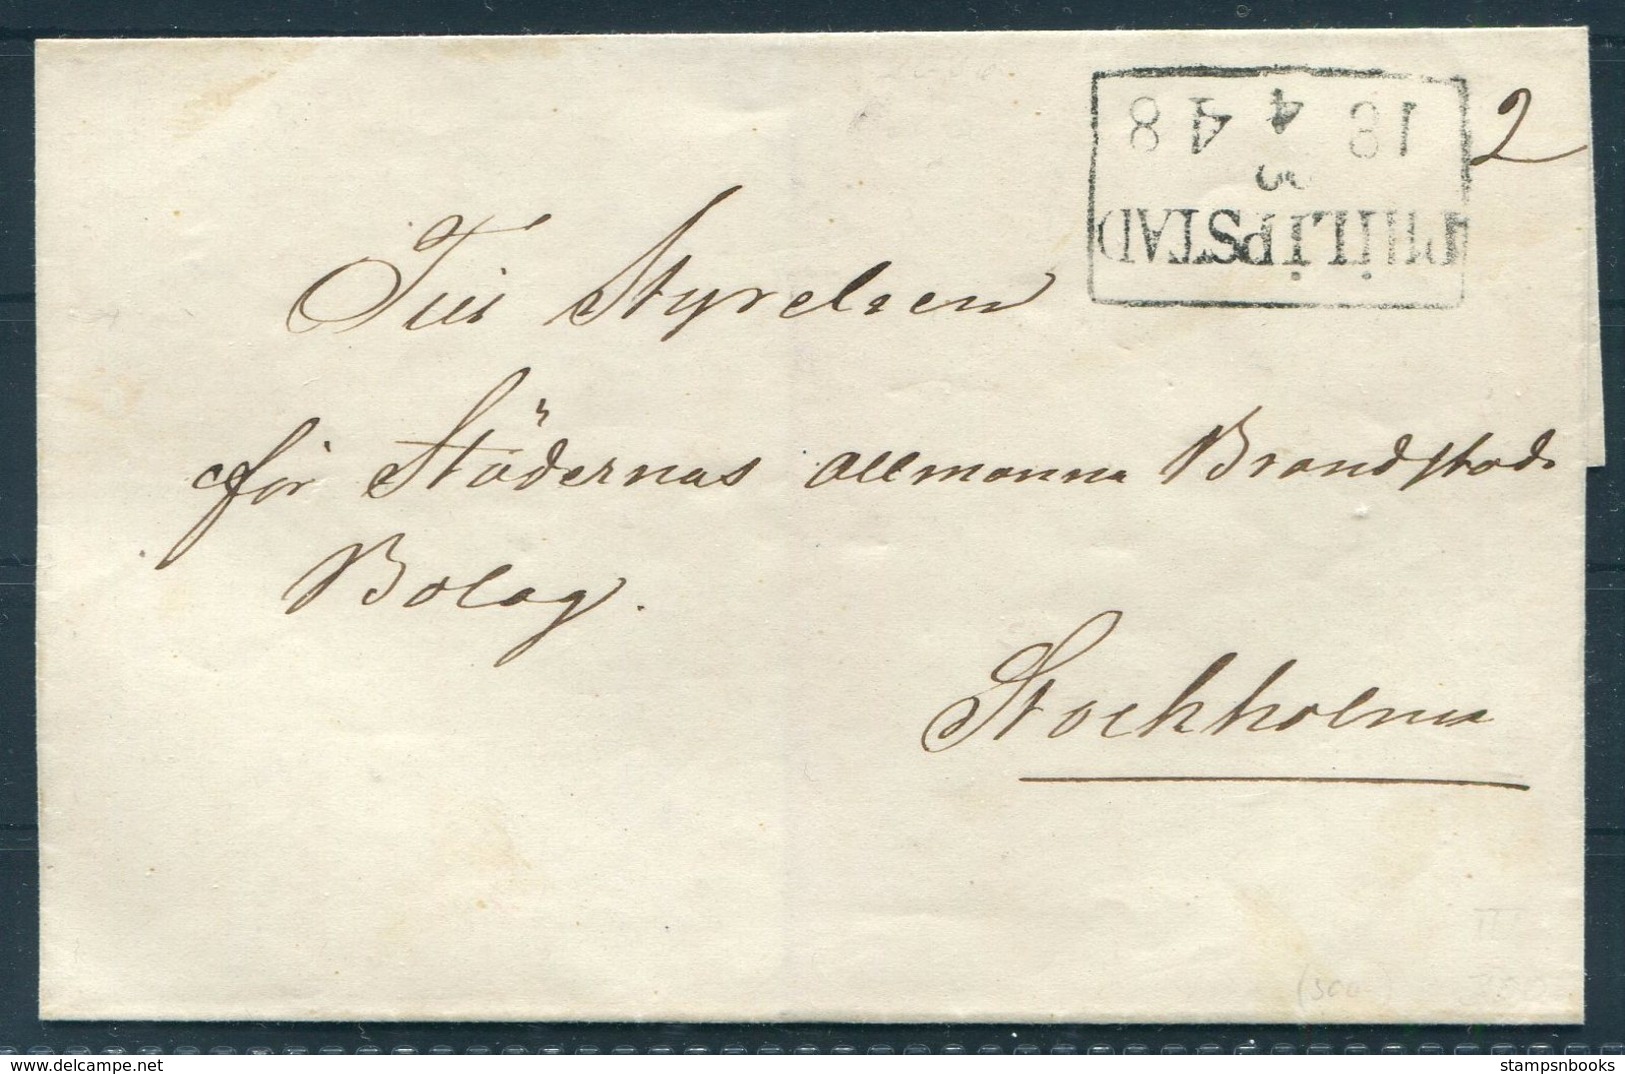 2
PHILIPSTAD
3
4
18 48
Till Styrelsen
för Städernas Allmänna Brandstods
Bolag.
Stockholm
III
delcampe.net
stampsnbooks